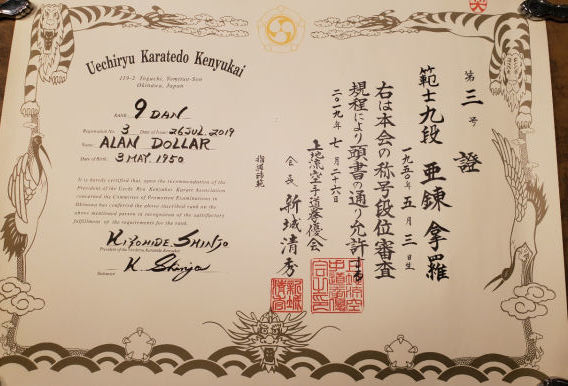 Uechiryu Karatedo Kenyukai
Okinawa, Japan
RANK: 9 DAN
Registrated No. 3 Date of Issue: 26 JUL. 2019
Name: ALAN DOLLAR
Date of Birth: 3 MAY. 1950
It is hereby certified that, upon the recommendation of the
President of the Uechi Ryu Kenyukai Karate Association
concerned the Committee of Promotional Examinations in
Okinawa has conferred the above described rank on the
above mentioned person in recognition of the satisfactory
fulfillment of the requirements for the rank.
KIYOHIDE SHINJO
President of the Uechiryu Karatedo Kenyukai
K. Shinjo
第三号
證
範士九段 亜錬 拿羅
一九五〇年 五月 三日生
右は本会の称号段位審査
規程により頭書の通り允許する
二〇一九年 七月二十六日
上地流空手道拳優会
会長 新城清秀